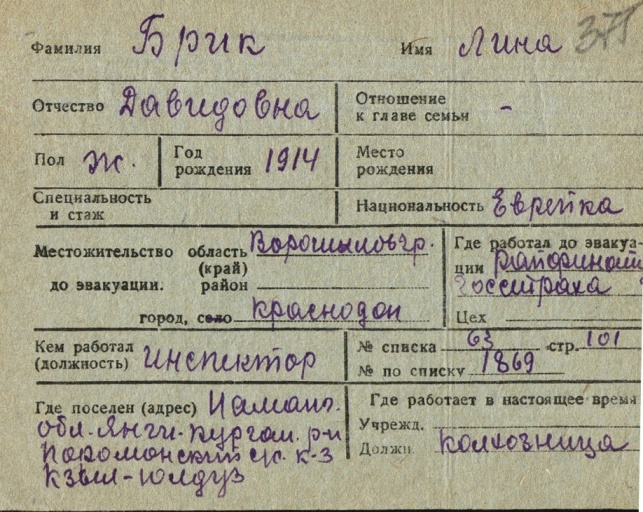 Фамилия Брик Имя Лина 375
Отчество Давидовна Отношение к главе семьи -
Пол Ж. Год рождения 1914 Место рождения
Специальность и стаж Национальность Еврейка
Местожительство область Ворошиловгр.
(край)
до эвакуации. район
город, село Краснодон
Где работал до эвакуа-
ции райфинотд
Госстраха
Цех
Кем работал (должность) инспектор
№ списка 63 стр. 101
№ по списку 1869
Где поселен (адрес) Наманг.
обл. Янги-Курган. р-н
с/с. к-з
Кзыл-Юлдуз
Где работает в настоящее время
Учрежд.
Должн. колхозница